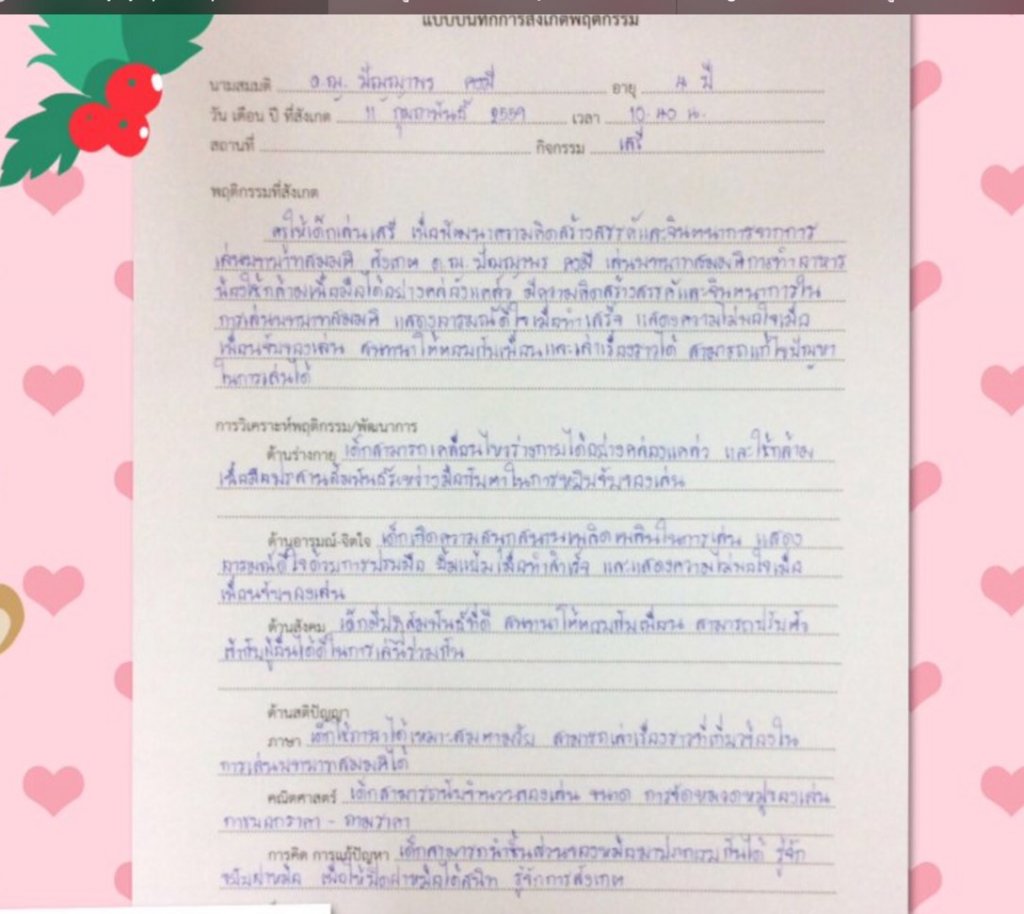 แบบบันทึกการสังเกตพฤติกรรม
นามสมมติ อ.ณ. ปัณฑาพร คงมี อายุ 4 ปี
วัน เดือน ปี ที่สังเกต 11 กุมภาพันธ์ 2559 เวลา 10.40 น.
สถานที่ กิจกรรม เสรี
พฤติกรรมที่สังเกต
ครูให้เด็กเล่นเสรี เพื่อพัฒนาความคิดสร้างสรรค์และจินตนาการจากการ
เล่นบทบาทสมมติ สังเกต อ.ณ. คงมี เล่นบทบาทสมมติการทำอาหาร
น้องใช้กล้ามเนื้อมือได้อย่างคล่องแคล่ว มีความคิดสร้างสรรค์และจินตนาการใน
การเล่นบทบาทสมมติ แสดงอารมณ์ดีใจเมื่อทำเสร็จ แสดงความไม่พอใจเมื่อ
เพื่อนจับของเล่น สนทนาโต้ตอบกับเพื่อนและเล่าเรื่องราวได้ สามารถแก้ไขปัญหา
ในการเล่นได้
การวิเคราะห์พฤติกรรม/พัฒนาการ
ด้านร่างกาย เด็กสามารถเคลื่อนไหวร่างกายได้อย่างคล่องแคล่ว และใช้กล้าม
เนื้อมือประสานสัมพันธ์ระหว่างมือกับตาในการหยิบจับของเล่น
ด้านอารมณ์-จิตใจ เด็กเกิดความสนุกสนานเพลิดเพลินในการเล่น แสดง
อารมณ์ดีใจด้วยการปรบมือ ยิ้มแย้มเมื่อทำสำเร็จ และแสดงความไม่พอใจเมื่อ
เพื่อนจับของเล่น
ด้านสังคม เด็กมีปฏิสัมพันธ์ที่ดี สนทนาโต้ตอบกับเพื่อน สามารถปรับตัว
เข้ากับผู้อื่นได้ดีในการเล่นร่วมกัน
ด้านสติปัญญา
ภาษา เด็กใช้ภาษาได้เหมาะสมตามวัย สามารถเล่าเรื่องราวที่เกี่ยวข้องใน
การเล่นบทบาทสมมติได้
คณิตศาสตร์ เด็กสามารถนับจำนวนของเล่น ขนาด การจัดหมวดหมู่ของเล่น
การบอกราคา - ถามราคา
การคิด การแก้ปัญหา เด็กสามารถนำชิ้นส่วนของหม้อมาประกอบกันได้ รู้จัก
ฝาหม้อ เพื่อให้ปิดฝาหม้อได้สนิท รู้จักการสังเกต